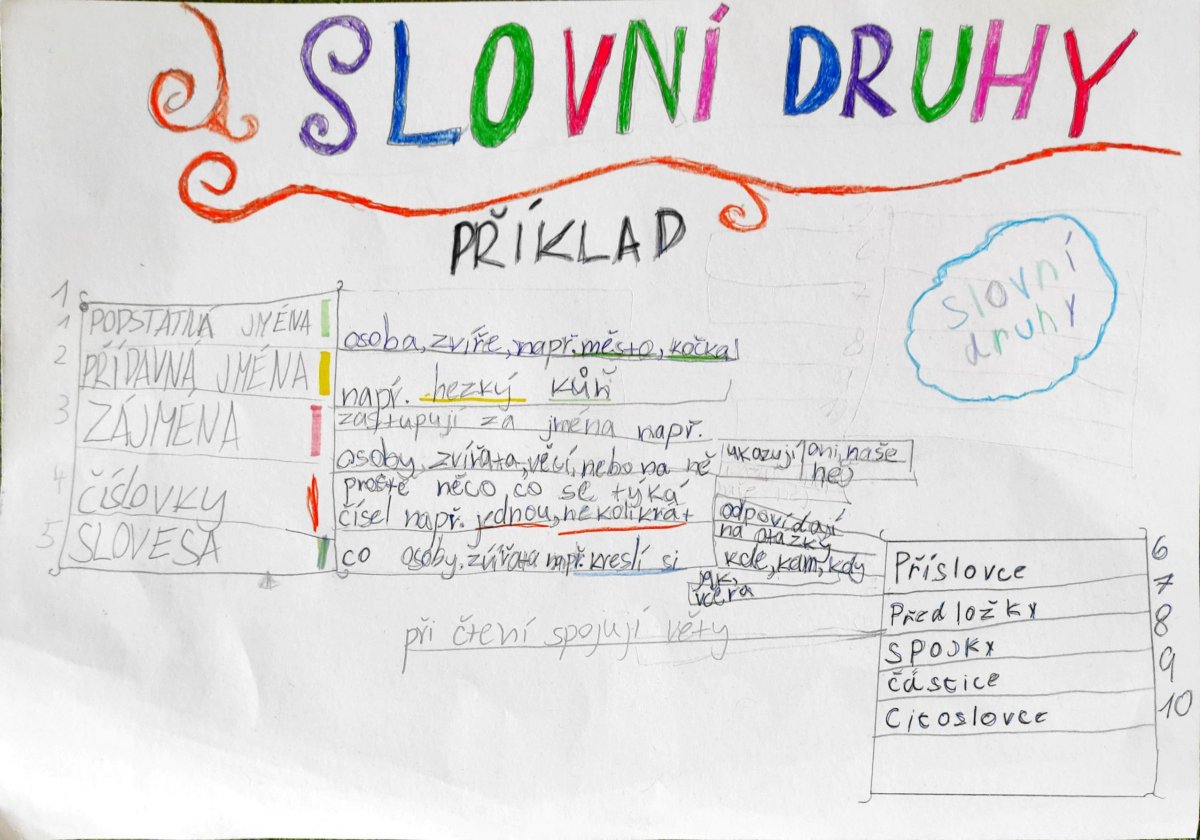 SLOVNÍ DRUHY
PŘÍKLAD
slovní
druhy
1
1 PODSTATNÁ JMÉNA
osoba, zvíře, např. město, kočka
2 PŘÍDAVNÁ JMÉNA
např. hezký kůň
3 ZÁJMÉNA
zastupují za jména např.
osoby, zvířata, věcí, nebo na ně
ukazují ani, naše
4 číslovky
prostě něco co se týká
čísel např. jednou, několikrát
5 SLOVESA
co osoby, zvířata např. kreslí si
odpovídají
na otázky
kde, kam, kdy
jak,
včera
při čtení spojují věty
Příslovce 6
Předložky 7
SPOJKY 8
částice 9
Citoslovce 10